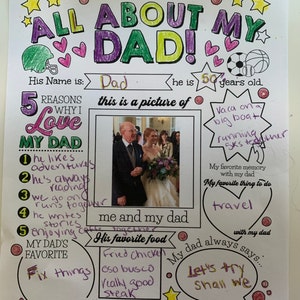 ALL ABOUT MY
DAD!
His Name is: Dad he is 50 years old.
5 REASONS
WHY I
Love
MY DAD
1 he likes
adventures
2 he's always
reading
3 we go on
runs together
4 he writes
stories
5 enjoying
together
this is a picture of
me and my dad
on
big boat
running
5ks together
My favorite memory
with my dad
My favorite thing to do
travel
with my dad
MY DAD'S
FAVORITE
Fix things
His favorite food
Fried chicken
oso busco
really good
steak
My dad always says...
Let's try
shall we